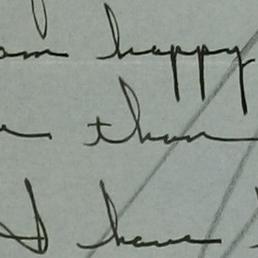 am happy
than
I have